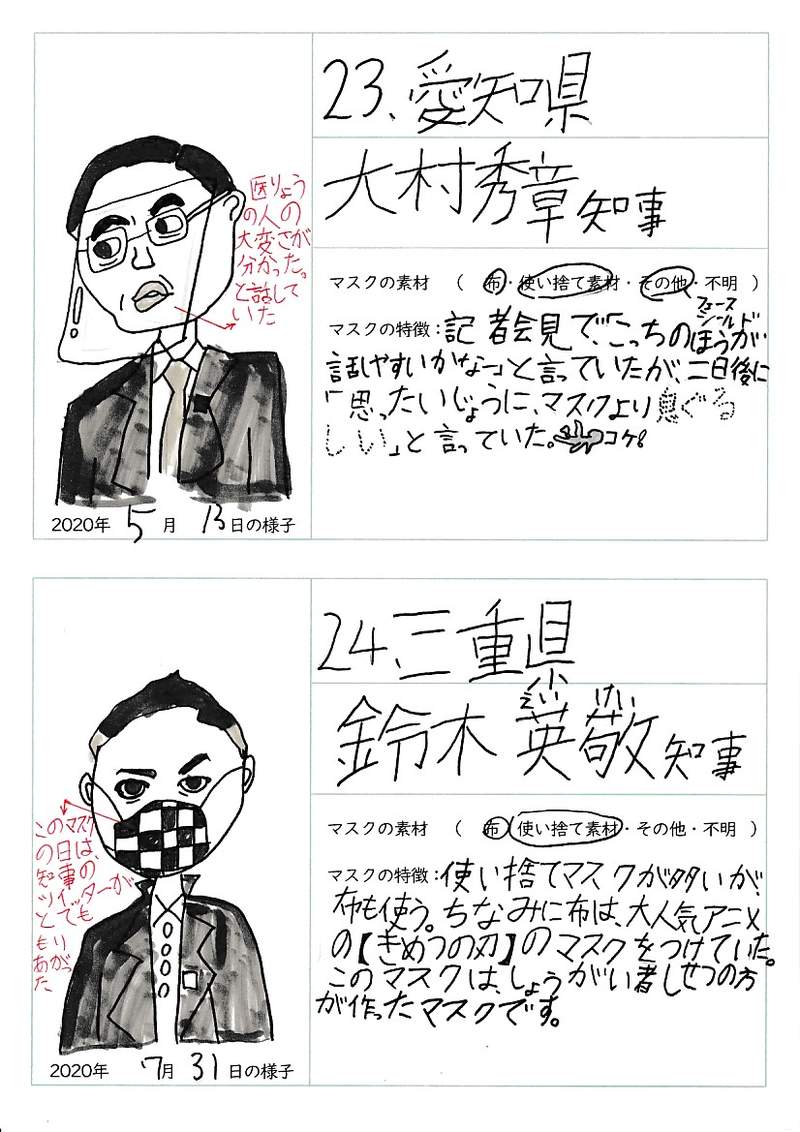 23.愛知県
大村秀章知事
医りょう
の人の
大変さが
分かった。
と話して
いた
マスクの素材 （ 布・使い捨て素材・その他・不明 ）
フェース
シールド
マスクの特徴：記者会見で、「こっちのほうが
話しやすいかなー」と言っていたが、二日後に
「思ったいじょうに、マスクより息ぐる
しい」と言っていた。コケ!
2020年 5月 13日の様子
24.三重県
えい けい
鈴木英敬知事
マスクの素材 （ 布・使い捨て素材・その他・不明 ）
このマスク
の日は、
知事の
ツイッターが
とても
もり
あがっ
た
マスクの特徴：使い捨てマスクが多いが、
布も使う。ちなみに布は、大人気アニメ
の【きめつの刃】のマスクをつけていた。
このマスクは、しょうがい者しせつの方
が作ったマスクです。
2020年 7月 31日の様子